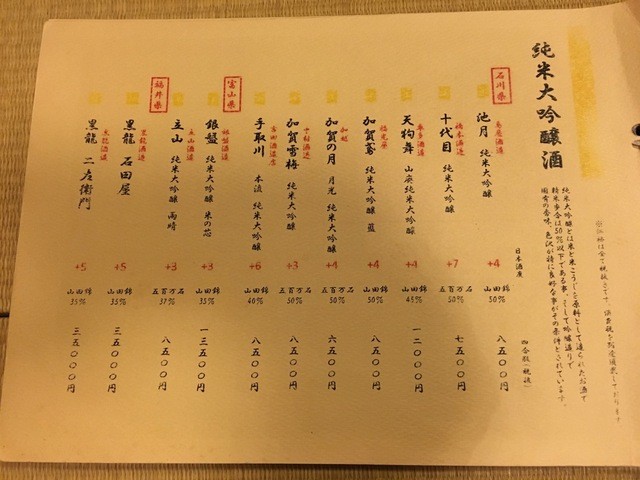 純米大吟醸酒
純米大吟醸酒とは米と米こうじを原料として造られたお酒で
精米歩合は50%以下である事、そして吟醸造りで
固有の香味、色沢が特に良好な事がその条件とされています。
日本酒度
四合瓶(税抜)
石川県
池月 純米大吟醸 +4 山田錦 50% 八五〇〇円
十代目 純米大吟醸 +7 五百万石 50% 七五〇〇円
天狗舞 山廃純米大吟醸 +4 山田錦 45% 一二〇〇〇円
加賀鳶 純米大吟醸 藍 +4 山田錦 50% 八五〇〇円
加賀の月 月光 純米大吟醸 +4 五百万石 50% 六五〇〇円
加賀雪梅 純米大吟醸 +3 五百万石 50% 八五〇〇円
手取川 本流 純米大吟醸 +6 山田錦 40% 八五〇〇円
富山県
銀盤酒造
銀盤 純米大吟醸 米の芯 +3 山田錦 35% 一三五〇〇円
立山酒造
立山 純米大吟醸 雨晴 +3 五百万石 37% 八五〇〇円
福井県
黒龍酒造
黒龍 石田屋 +5 山田錦 35% 三五〇〇〇円
黒龍酒造
黒龍 二左衛門 +5 山田錦 35% 三五〇〇〇円